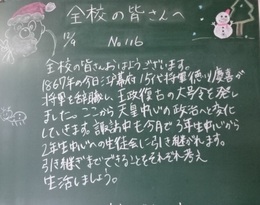 全校の皆さんへ
12/9 No116
全校の皆さんおはようございます。
1867年の今日江戸幕府15代将軍徳川慶喜が
将軍を辞職し、王政復古の大号令を発し
ました。ここから天皇中心の政治へと変化
していきます。諏訪中も今月で3年生中心から
2年生中心への生徒会に引き継がれます。
引き継ぎまでできることをそれぞれ考え
生活しましょう。